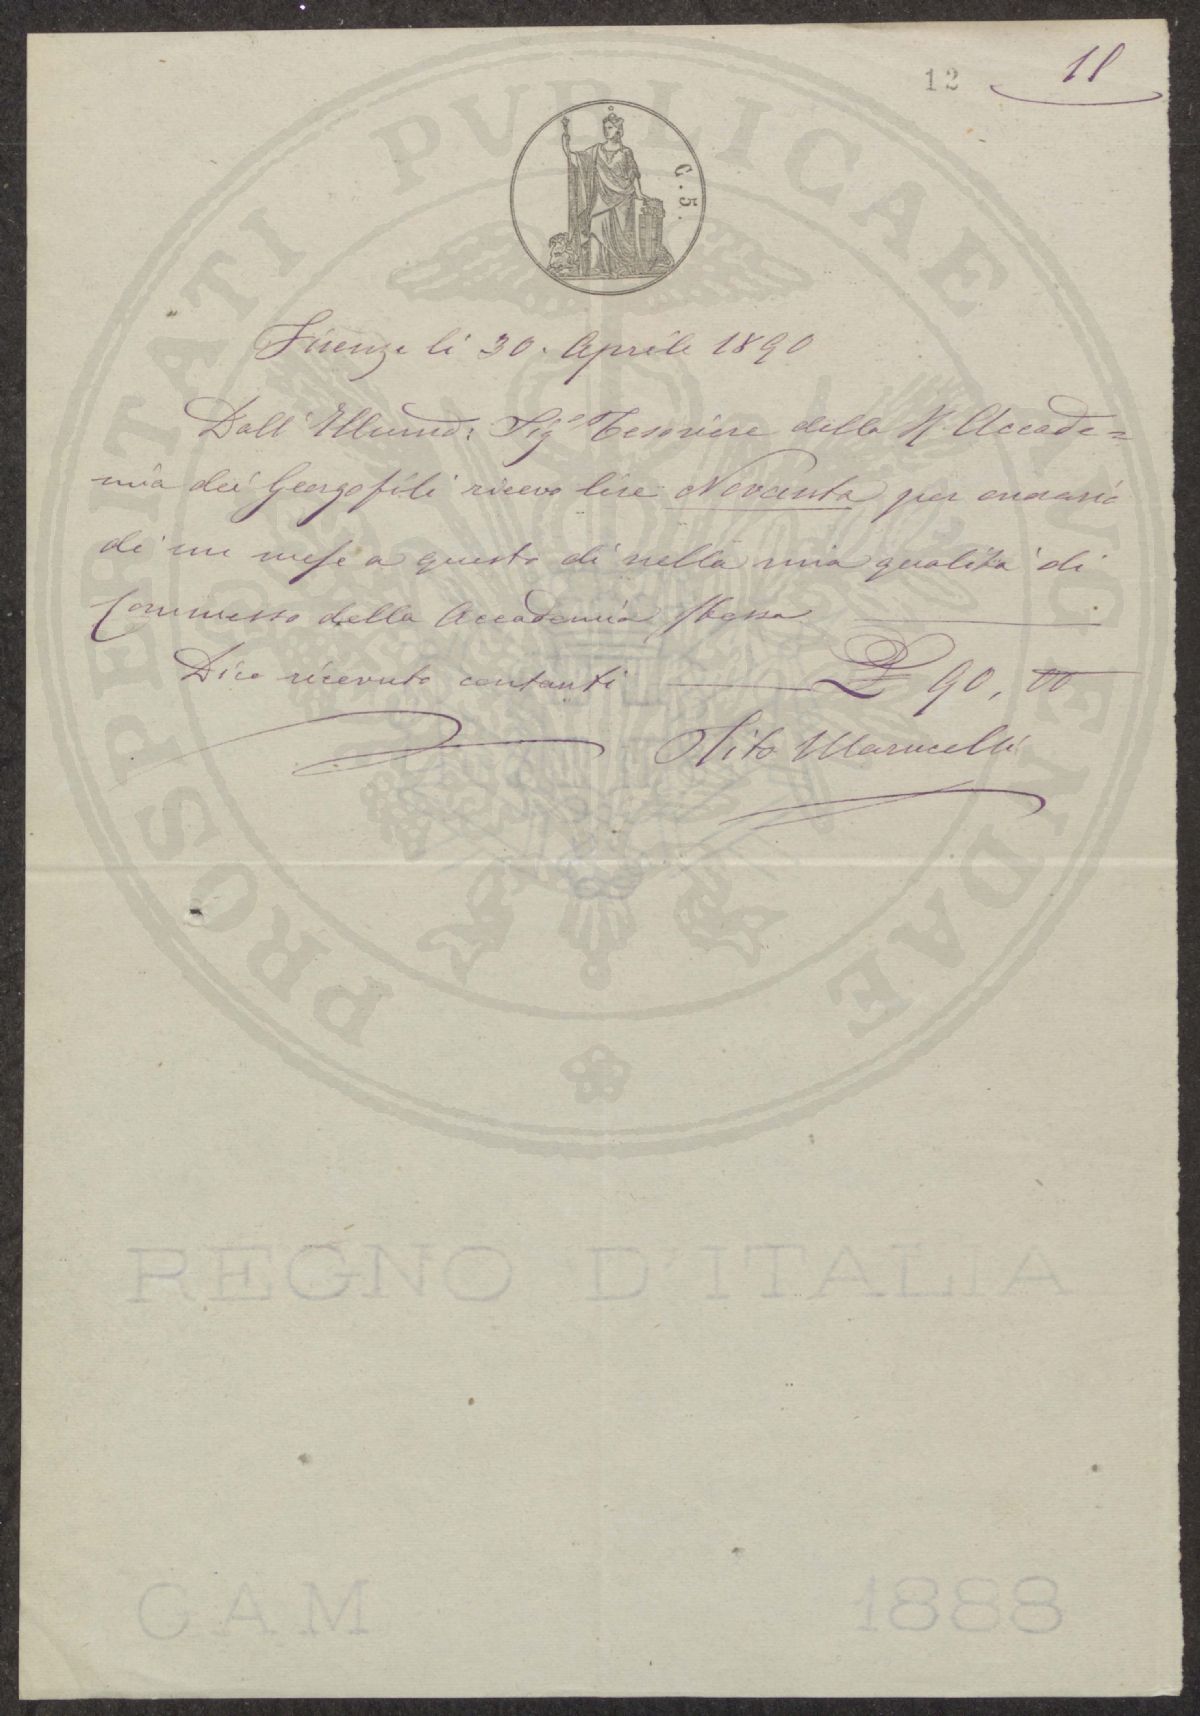 12
18
C. 5.
Firenze li 30. Aprile 1890
Dall' Illumo: Sigr Tesoriere della R. Accade=
mia dei Georgofili ricevo lire Novanta per onorario
di un mese a questo dì nella mia qualità di
Commesso della Accademia stessa
Dico ricevuto contanti £ 90, 00
Tito Marucelli
PROSPERITATI PVBLICAE AVGENDAE
REGNO D'ITALIA
CAM 1888